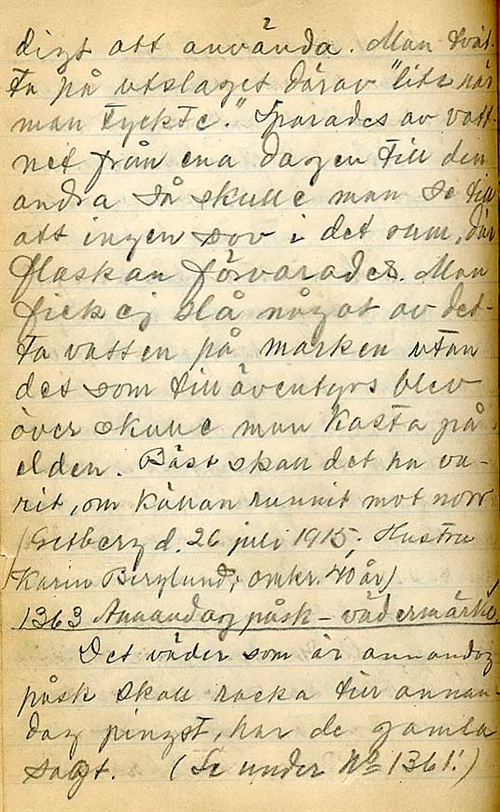 2
digt att använda. Man tvät-
ta på utslaget därav "lite när
man tyckte." Sparades av vatt-
net från ena dagen till den
andra så skulle man se till
att ingen sov i det rum, där
flaskan förvarades. Man
fick ej slå något av det-
ta vatten på marken utan
det som till äventyrs blev
över skulle man kasta på
elden. Bäst skall det ha va-
rit, om källan runnit mot norr
(Getberg d. 26 juli 1915; Hustru
Karin Berglund, omkr. 40 år)
1363 Annandag påsk - vädermärke
Det väder som är annandag
påsk skall racka till annan
dag pingst, har de gamla
sagt. (Se under No 1361!)